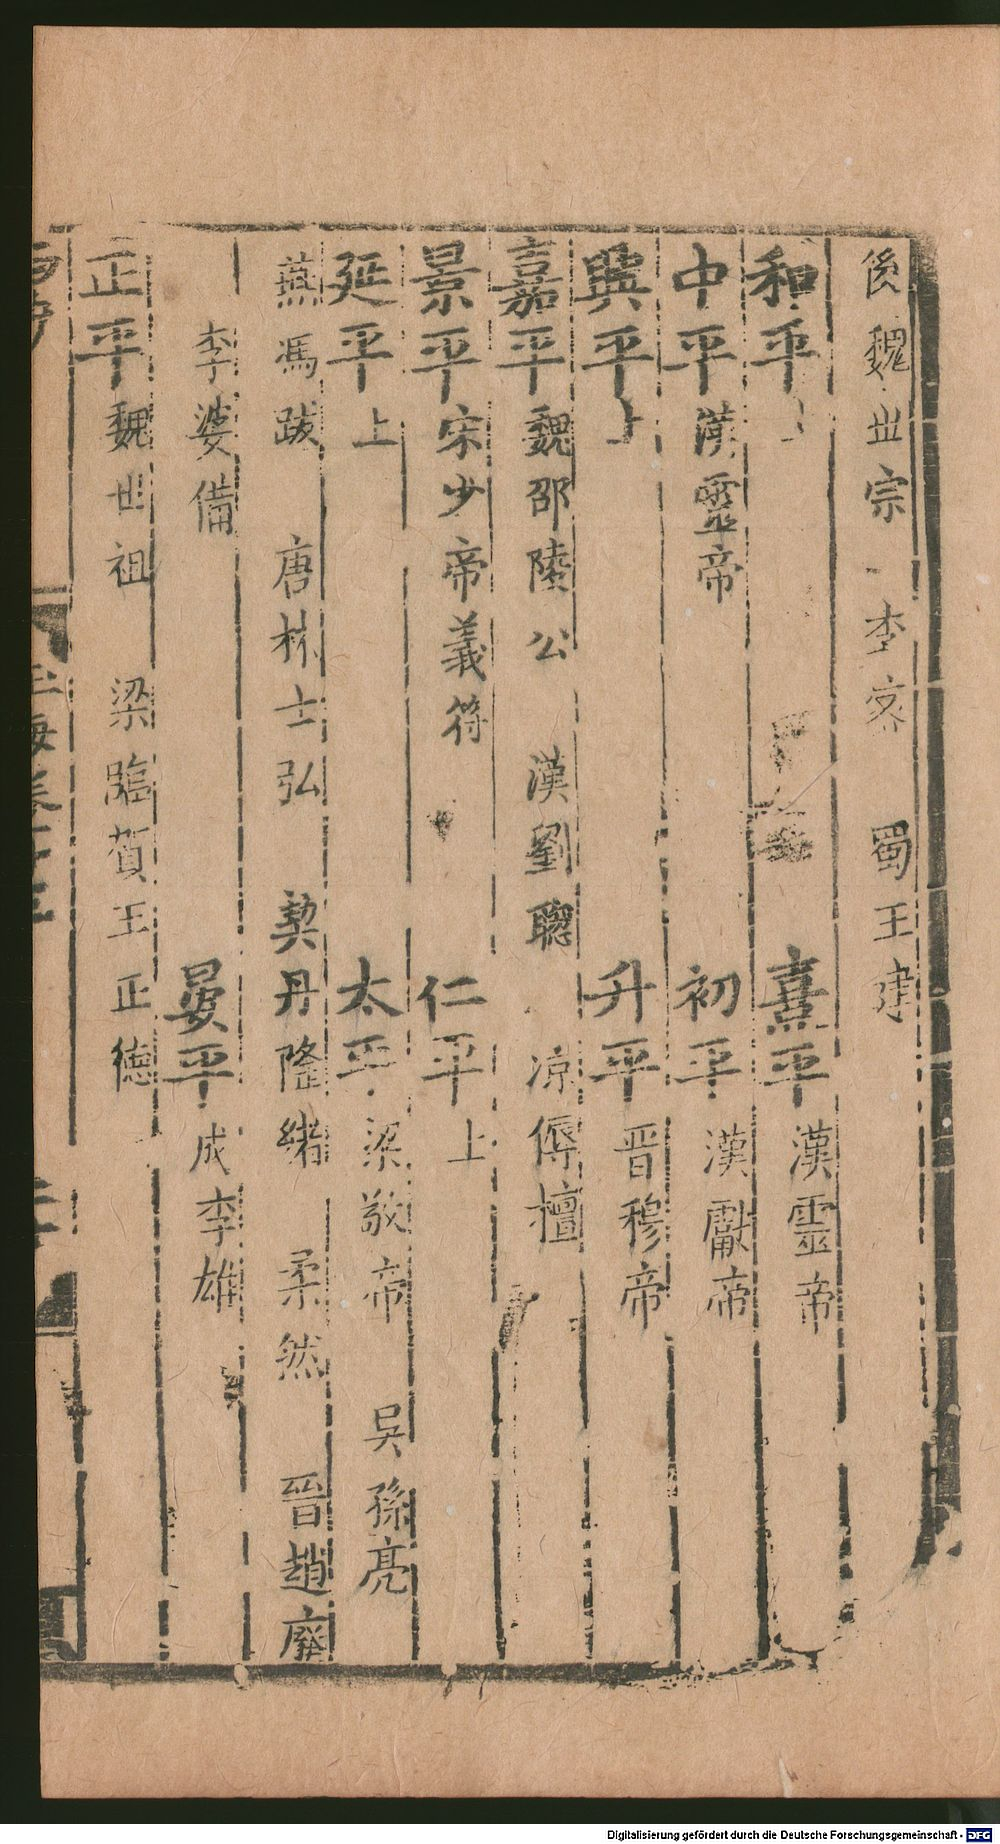 後魏世宗 李密 蜀王建
和平上 熹平漢靈帝
中平漢靈帝 初平漢獻帝
興平上 升平晉穆帝
嘉平魏邵陵公 漢劉聰 凉傉檀
景平宋少帝義符 仁平上
延平上 太平梁敬帝 吳孫亮
燕馮跋 唐林士弘 契丹隆緒 柔然 晉趙廞
李婆備 晏平成李雄
正平魏世祖 梁臨賀王正德
Digitalisierung gefördert durch die Deutsche Forschungsgemeinschaft - DFG